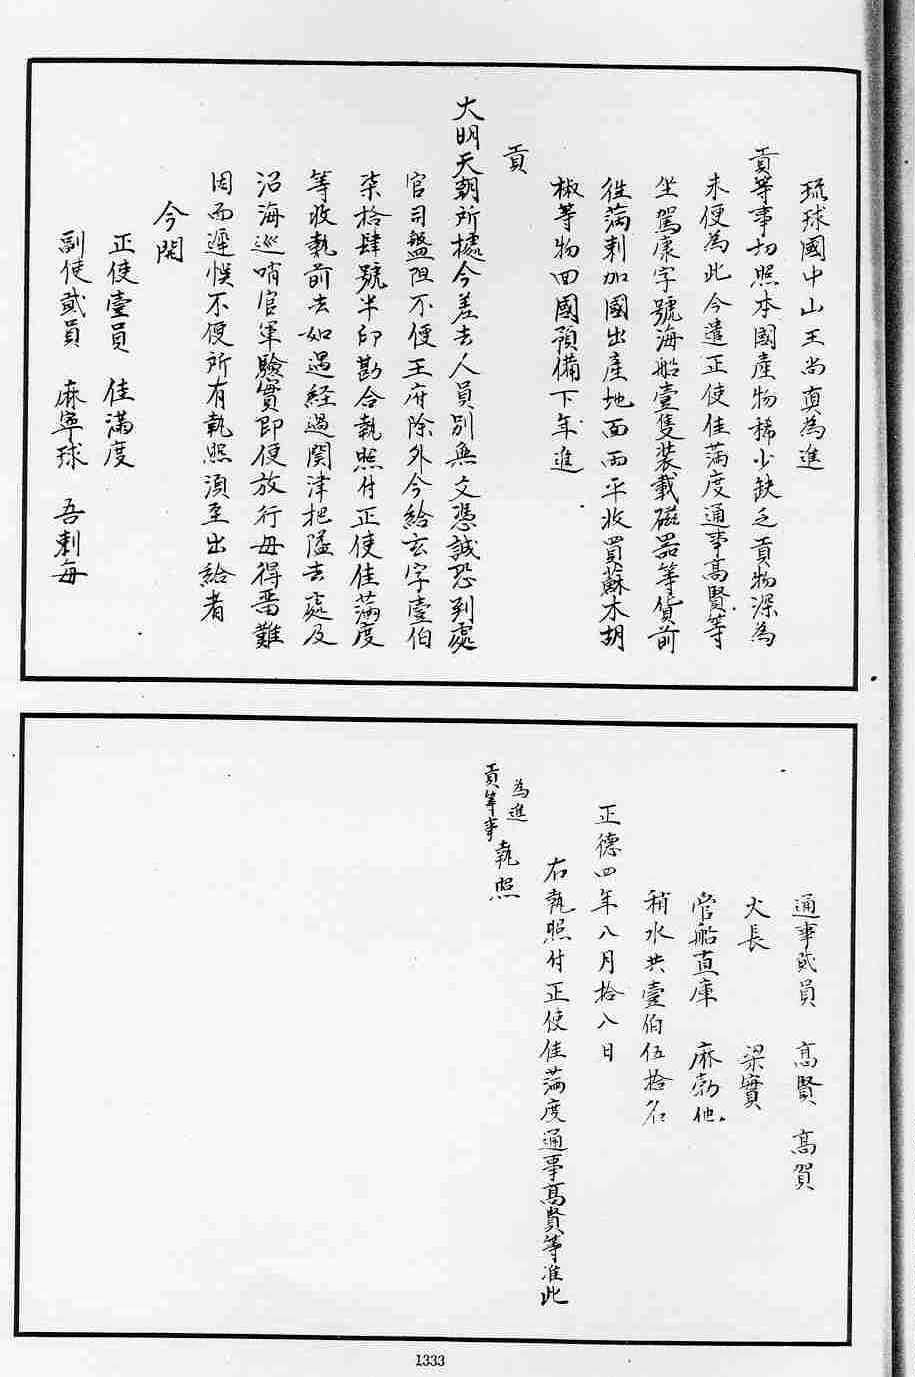 琉球國中山王尚真為進
貢等事切照本國產物稀少缺乏貢物深為
未便為此今遣正使佳滿度通事高賢等
坐駕康字號海船壹隻裝載磁器等貨前
徃滿剌加國出產地面兩平收買蘇木胡
椒等物回國預備下年進
貢
大明天朝所據今差去人員別無文憑誠恐到處
官司盤阻不便王府除外今給玄字壹伯
柒拾肆號半印勘合執照付正使佳滿度
等收執前去如遇経過関津把隘去處及
沿海巡哨官軍驗實即便放行毋得畱難
因而遲悞不便所有執照須至出給者
今開
正使壹員 佳滿度
副使貳員 麻寧球 吾剌每
通事貳員 高賢 高賀
火長 梁實
管船直庫 麻勃他
稍水共壹伯伍拾名
正德四年八月拾八日
右執照付正使佳滿度通事高賢等准此
為進
貢等事 執照
1333